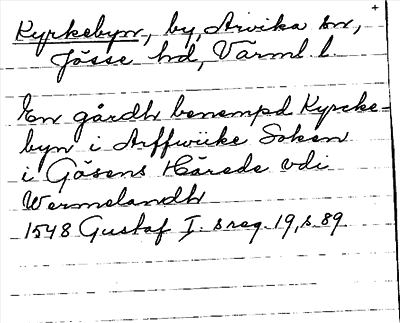 Kyrkebyn, by, Arvika sn,
Jösse hd, Värml. l.
En gårdh benempd Kyrcke-
byn i Arffwiike Soken
i Gösens Härede vdi
Wermelandh
1548 Gustaf I:s reg. 19, s. 89